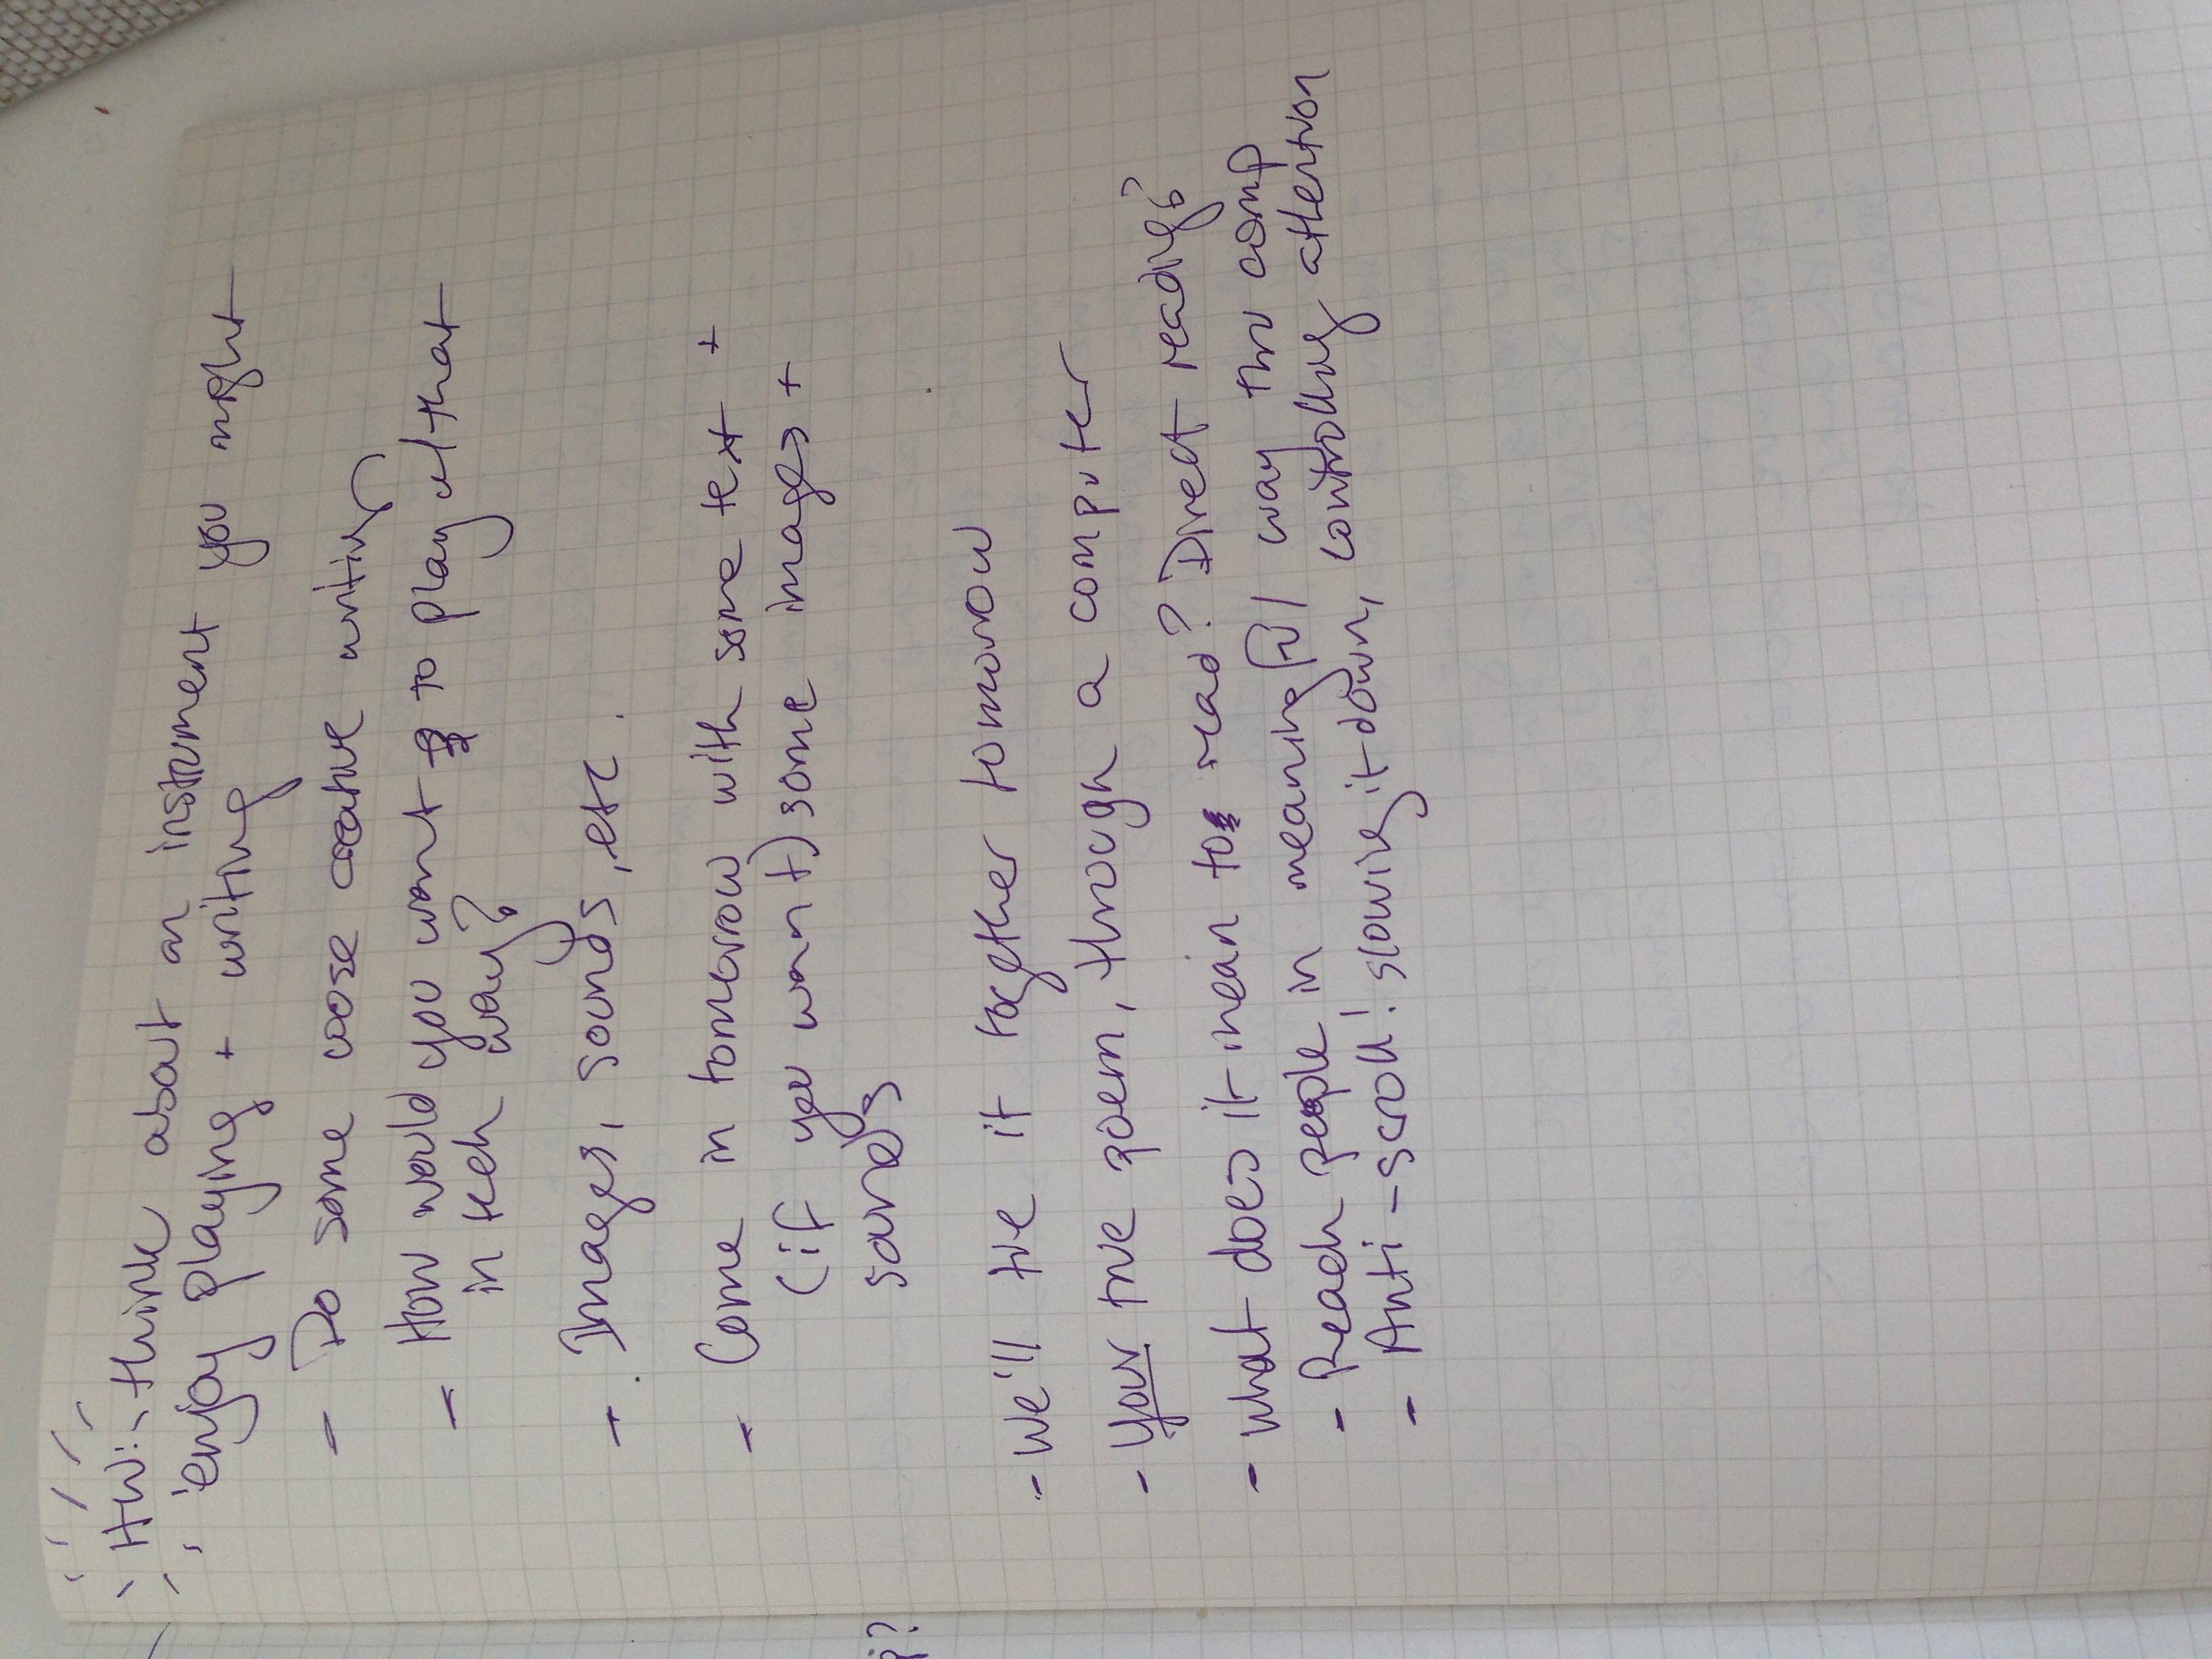 HW: - think about an instrument you might
enjoy playing + writing
- Do some loose creative writing
- How would you want to play w/ that
in tech way?
- Images, sounds, etc.
- Come in tomorrow with some text +
(if you want) some images +
sounds
- We'll tie it together tomorrow
- Your true poem, through a computer
- what does it mean to read? Direct reading?
- Reach people in meaningful way thru comp
- Anti-scroll! slowing it down, controlling attention